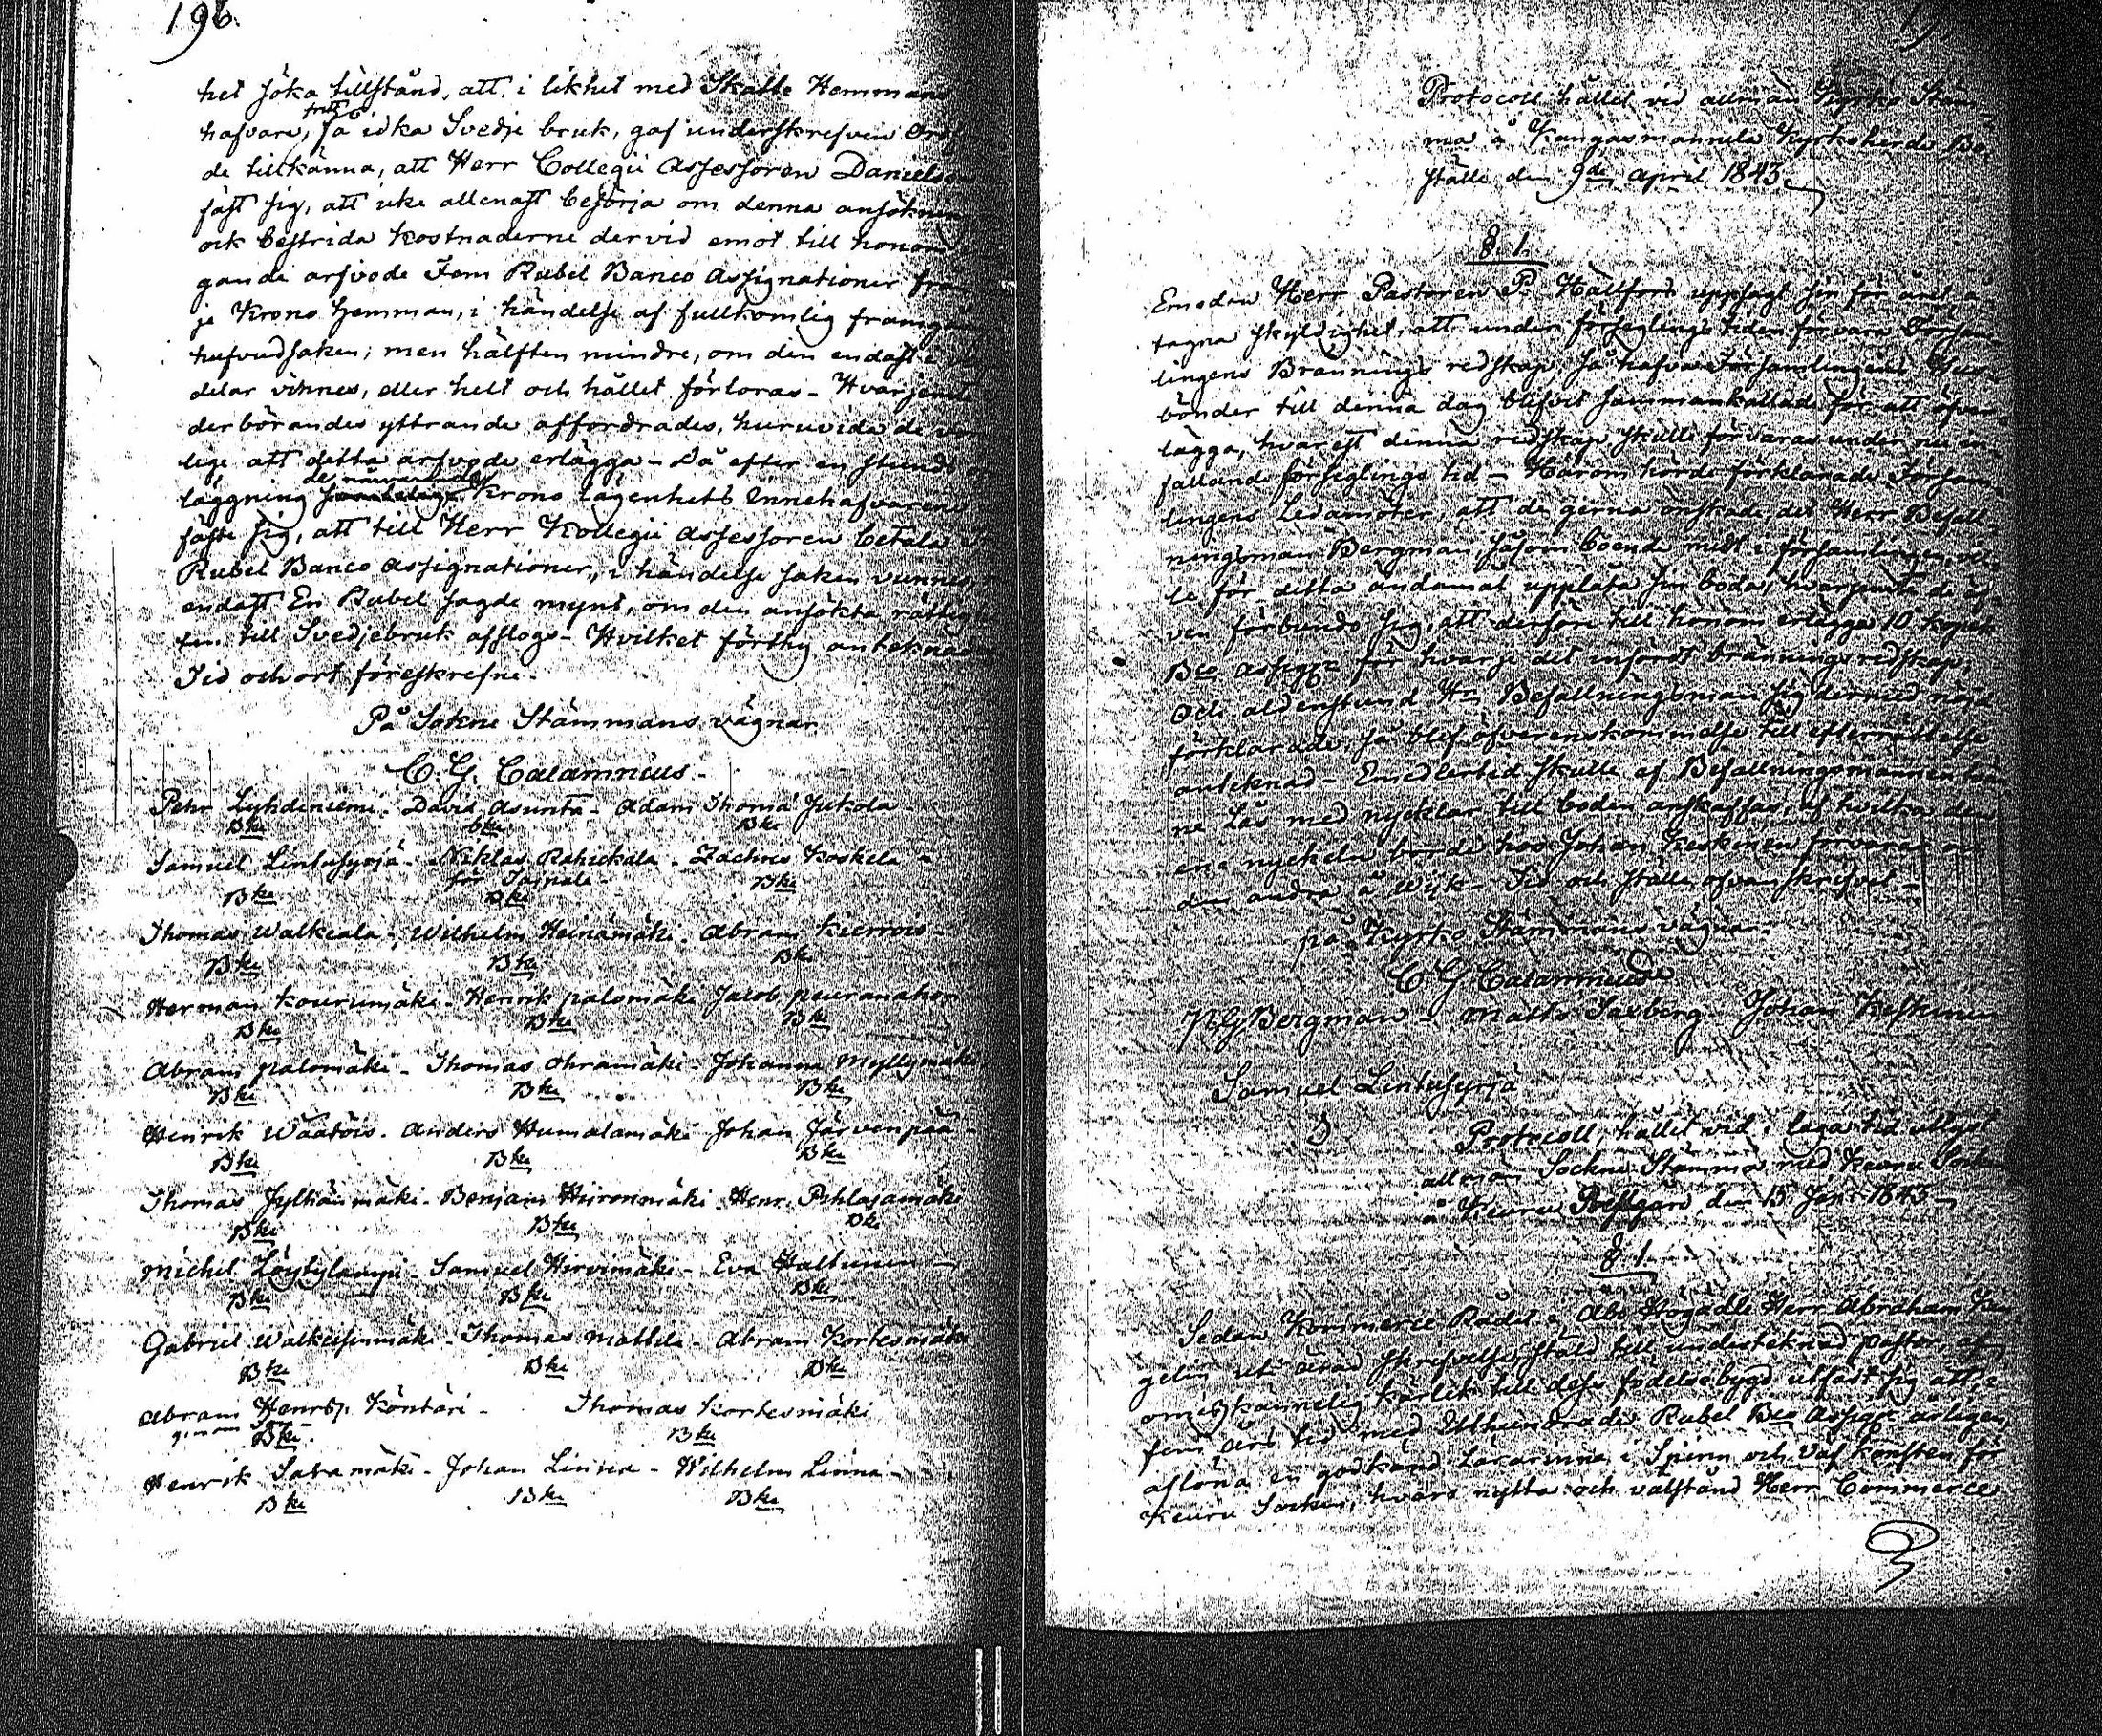 196.
het söka tillstånd, att, i likhet med Skatte Hemmans
hafvare, fritt få idka Svedje bruk, gaf underskrefven Ordf
de tillkänna, att Herr Collegii Assessoren Danielson
fäst sig, att icke allenast besörja om denna ansökning
ock bestrida kostnaderne dervid emot till honom
gande arfvode Fem Rubel Banco Assignationer från
je Krono Hemman, i händelse af fullkomlig framgång
hufvudsaken; men hälften mindre, om den endast i
delar vinnes, eller helt och hållet förloras - Hvarjemte
derbörandes yttrande affordrades, huruvida de voro
lige att detta arfvode erlägga - Då efter en stunds
läggning de närvarande Krono lägenhets Innehafvarene
fäste sig, att till Herr Kollegii Assessoren betala
Rubel Banco Assignationer, i händelse saken vunnes,
endast En Rubel sagde mynt, om den ansökta rättig
ten till Svedjebruk afslogs - Hvilket förthy antecknades
Tid och ort föreskrefne.
På Sokne Stämmans vägnar
C. G. Calamnius.
Pehr Lyhdeniemi - David Asunta - Adam Thomä Jukola -
Bke Bke Bke
Samuel Lintusyrjä - Niklas Rahikala - Zachris Koskela -
för Taipale
Bke Bke Bke
Thomas Walkeala - Wilhelm Heinämäki - Abram Kierrois -
Bke Bke Bke
Herman Kourumäki - Henrik palomäki Jacob puuranahon
Bke Bke Bke
Abram palomäki - Thomas Ohramäki - Johanna Myllymäki
Bke Bke Bke
Henrik Wäätöis. Anders Humalamäki Johan Järvenpää -
Bke Bke Bke
Thomas Jylhänmäki - Benjam Hiironmäki - Henr. Pihlajamäki
Bke Bke Bke
Michel Löytylampi - Samuel Hirvimäki - Eva Haltunen -
Bke Bke Bke
Gabriel Walkiesenmäki - Thomas Mattila - Abram Kortesmäki
Bke Bke Bke
Abram Henrss. Köntäri - Thomas Kortesmäki
genom Son
Bke. Bke
Henrik Saramäki - Johan Linna - Wilhelm Linna -
Bke Bke Bke
Protocoll hållet vid allmän Kyrko Stäm
ma å Kangasmannila Kyrkoherde Bo
ställe den 9de April 1843
§ 1.
Emedan Herr Pastoren P. Hällfors uppsagt sin för året å
tagna skyldighet, att under förseglings tiden förvara Försam
lingens Brännings redskap, så hafva Församlingens Hus
bönder till denna dag blifvit sammankallade för att öfver
lägga, hvarest denna redskap skulle förvaras under nu in
fallande förseglings tid - Härom hörde förklarade Försam
lingens Ledamöter, att de gerna önskade det Herr Befall
ningsman Bergman, såsom boende midt i församlingen, vil
le för detta ändamål upplåta sin boda, hvarjemte de äf
ven förbundo sig, att derföre till honom erlägga 10 kopek
Bco assigne för hvarje dit infördt bränningsredskap.
Och aldenstund Hr Befallningsman sig dermed nöjd
förklarade, så blef öfverenskommelse till efterrättelse
antecknad - Emedlertid skulle af Befallningsmannen
ne Lås med nycklar till boden anskaffas, af hvilka den
ena nyckeln borde hos Johan Keskinen förvaras och
den andra å Wijk - Tid och ställe ofvanskrifvet -
på Kyrko Stämmans vägnar.
C G Calamnius
N. G. Bergman - Matts Saxberg Johan Keskinen
Samuel Lintusyrjä
Protocoll, hållet vid i laga tid utlyst
allmän Sockne Stämma med Keuru Socken
å Keuru Prestgård den 15 Jan 1843 -
§ 1.
Sedan Kommerce Rådet i Åbo Högädle Herr Abraham
gelin uti ärad skrifvelse, ställd till undertecknad pastor, af
omisskännelig kärlek till dess födelsebygd utfäst sig att, i
fem års tid med Etthundrade Rubel Bco Assigne årligen,
aflöna en godkänd Lärarinna i Spinn och Väf konsten för
Keuru Socken, hvars nytta och välstånd Herr Commerce